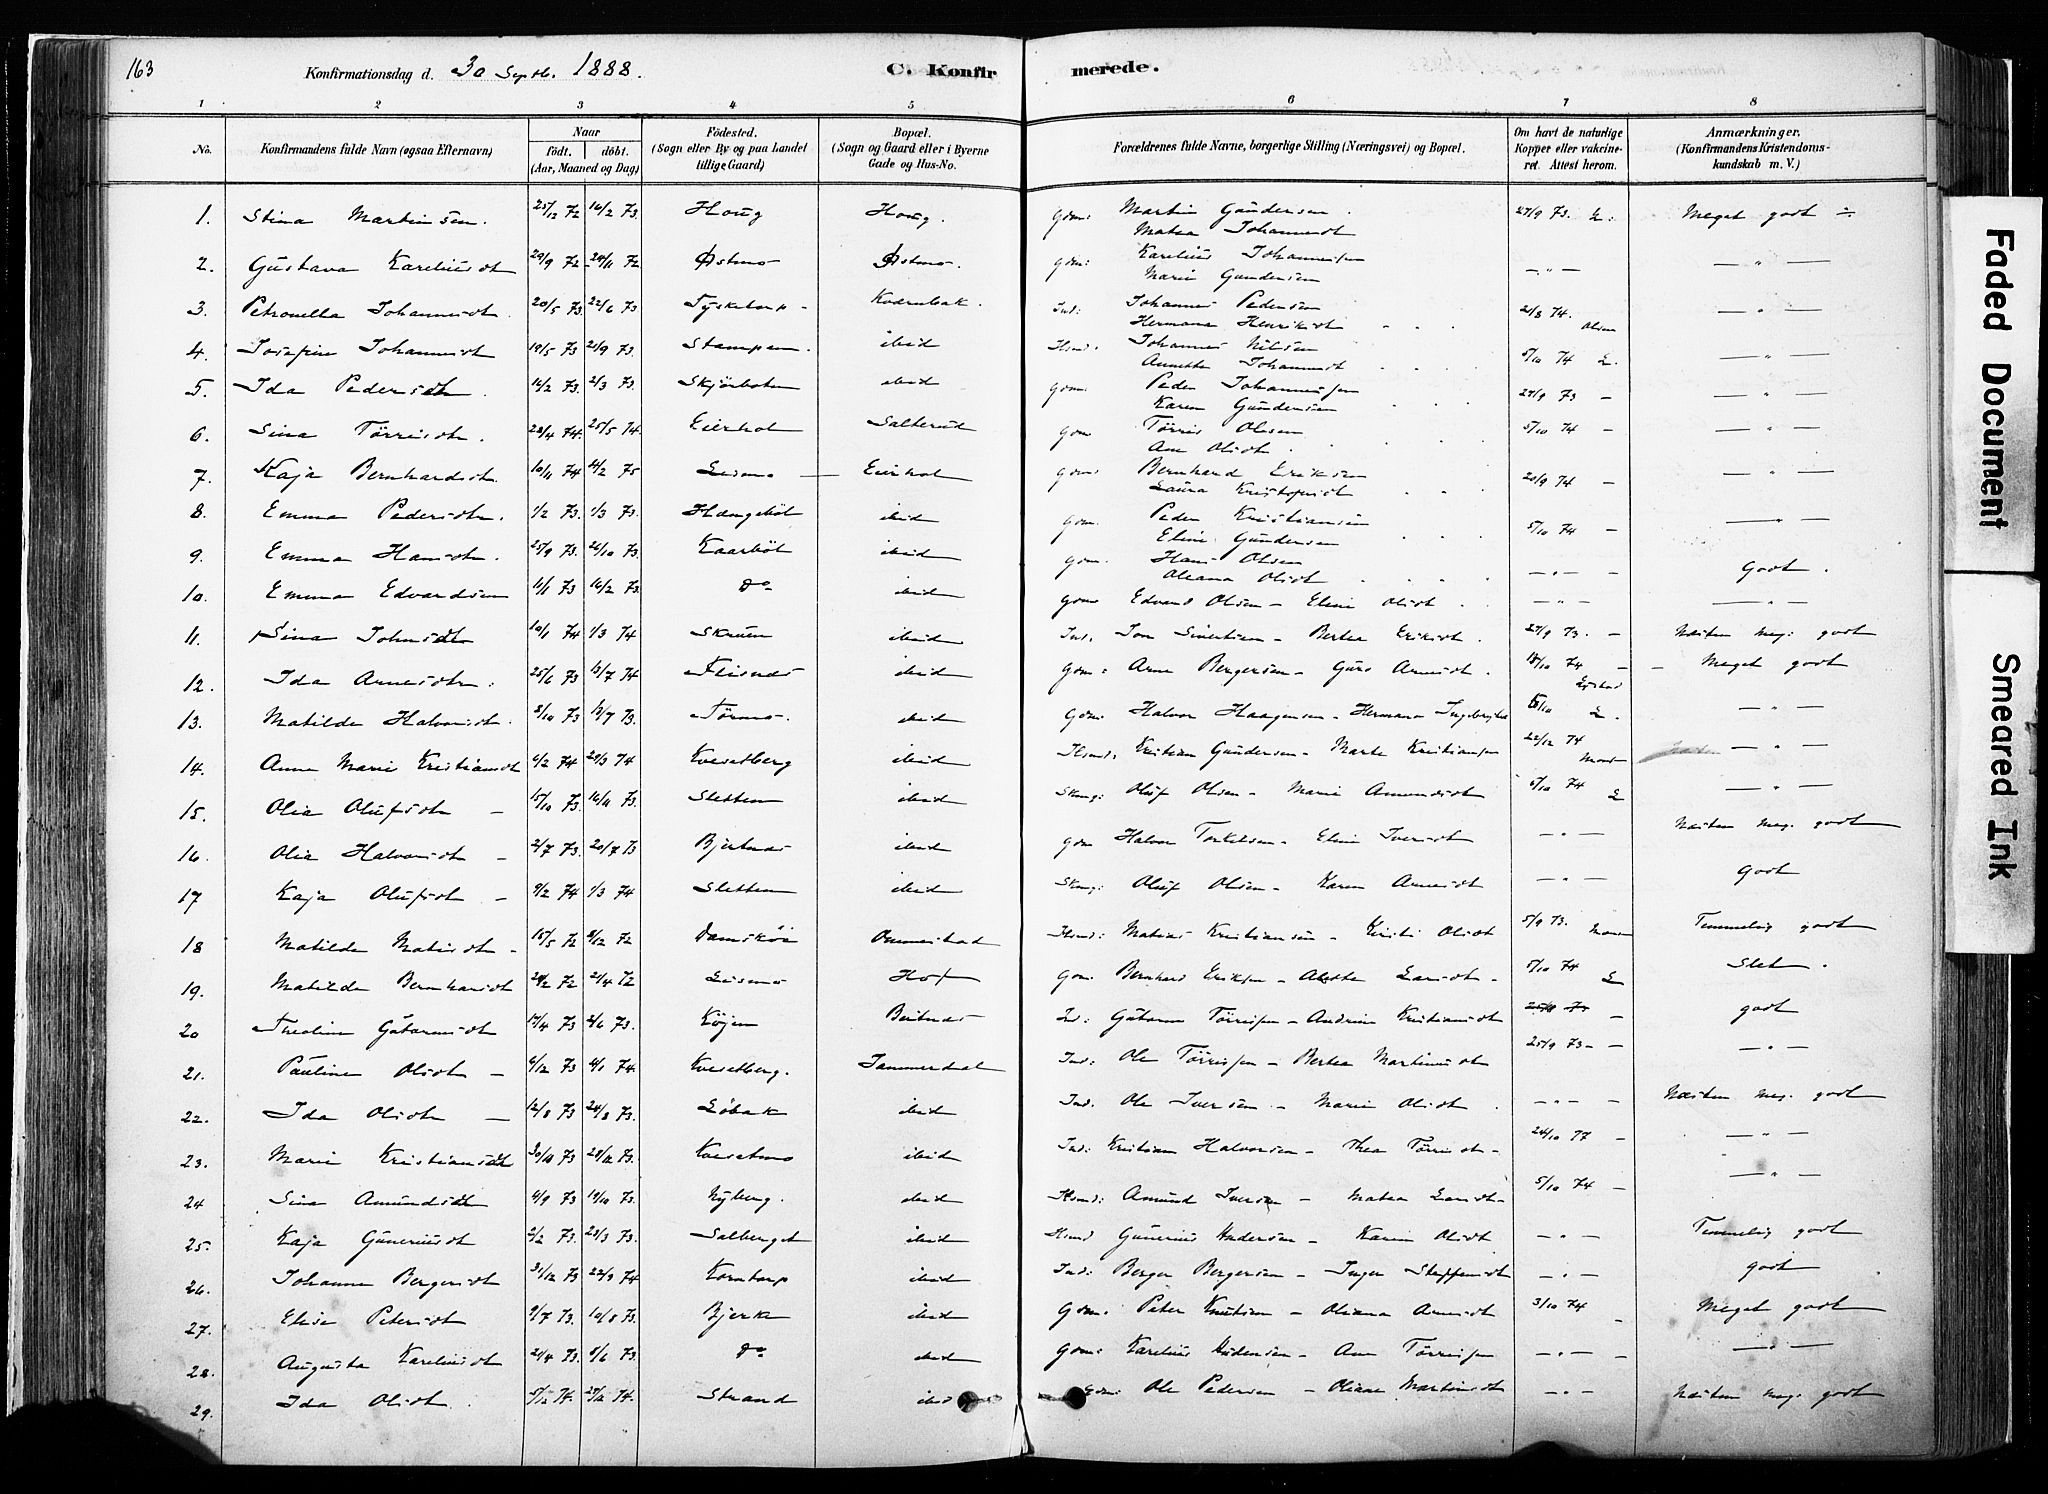 163
Konfirmationsdag d. 30 Septb. 1888.
C. Konfirmerede.
1 2 3 4 5 6 7 8
No. Konfirmandens fulde Navn (ogsaa Efternavn) Naar født. døbt. (Aar, Maaned og Dag) Fødested. (Sogn eller By og paa Landet tillige Gaard) Bopæl. (Sogn og Gaard eller i Byerne Gade og Hus-No. Forældrenes fulde Navne, borgerlige Stilling (Næringsvei) og Bopæl. Om havt de naturlige Kopper eller vakcineret. Attest herom. Anmærkninger. (Konfirmandens Kristendomskundskab m. V.)
1. Stina Martinsen. 25/12 72 16/2 73 Houg Houg. Gdm: Martin Gundersen. Matea Johannesdt 27/9 73. L: Meget godt
2. Gustava Kareliusdt 29/9 72 24/11 72 Østmo Østmo. Gdm: Karelius Johannesen Marie Gundersen — " — — " —
3. Petronella Johannesdt. 20/5 73 22/6 73 Tysketorp Kvernbak. Ind: Johannes Pedersen Hermana Henriksdt 21/8 74. Olsen — " —
4. Josefine Johannesdt 19/5 73 21/9 73. Stampen. ibid Hsmd: Johannes Nilsen Annette Johannesdt 5/10 74 L. — " —
5. Ida Pedersdt. 16/2 73. 2/3 73. Skjørboten ibid Gdm: Peder Johannesen Karen Gundersen 27/9 73 — — " —
6. Sina Tørrisdt. 28/4 74. 25/5 74. Eierhol Salterud Gdm Tørris Olsen Ane Olsdt. 5/10 74 — — " —
7. Kaja Bernhardsdt. 10/11 74 14/2 75 Leismo — Eierhol Gdm: Bernhard Eriksen Laura Kristofersdt 20/9 74 — — " —
8. Emma Pedersdtr. 1/2 73. 1/3 73. Hængebøl ibid Gdm. Peder Kristiansen Eline Gundersen 5/10 74 — — " —
9. Emma Hansdt. 25/9 73. 26/10 73. Kaarbøl ibid Gdm. Hans Olsen Oleana Olsdt — " — — Godt.
10. Emma Edvardsen 11/1 73 16/2 73. Do ibid Gdm Edvard Olsen — Eline Olsdt. — " — — " —
11. Sina Johnsdt 10/1 74 1/3 74 Skruen ibid Ind. Jon Sivertsen — Bertea Eriksdt. 27/9 73. — Næsten meg: godt
12. Ida Arnesdtr. 25/6 73 13/7 74 Flisnes ibid Gdm: Arne Bergersen — Guro Arnesdt. 18/10 74 — Meget godt
13. Matilde Halvorsdt. 2/10 73 12/7 73. Tørmo. ibid Gdm: Halvor Haagensen — Hermana Ingebrigtsd 5/10 L. — " —
14. Anne Marie Kristiansdt 6/2 74 29/3 74 Kvesetberg ibid Hsmd: Kristian Gundersen — Marte Kristiansen 22/12 74 — " —
15. Olia Olufsdt — 15/10 73. 16/11 73. Sletten ibid Skmg: Oluf Olsen — Marie Amundsdt 5/10 74 L — " —
16. Olia Halvorsdt — 2/7 73. 20/7 73 Bjertnes ibid Gdm Halvor Torkelsen — Eline Iversdt — " — Næsten meg. godt
17 Kaja Olufsdt — 9/2 74 1/3 74 Sletten ibid Skmg: Oluf Olsen — Karen Arnesdt — " — godt
18 Matilde Matisdt — 15/5 72 8/12 72 Damskøi Ommestad Hsmd: Matias Kristiansen — Kirsti Olsdt 5/9 73. Temmelig godt
19. Matilde Bernhardsdt 24/2 72 21/4 72 Leismo Hof Gdm. Bernhard Eriksen — Alette Larsdt — 5/10 74 L Slet.
20 Theoline Gutormsdt 17/4 73 2/6 73. Køjen Beitnes Ind: Gutorm Tørrissen — Andrine Kristiansdt — godt
21. Pauline Olsdt — 6/12 73 4/1 74. Kvesetberg. Jammerdal Ind: Ole Tørrissen — Bertea Martinusdt 25/9 73 — — — " —
22. Ida Olsdt — 12/8 73 24/8 73. Løbak ibid Ind. Ole Iversen — Marie Olsdt. — " — Næsten meg. godt
23. Marie Kristiansdt 30/10 73 28/12 73. Kvesetmo ibid Ind: Kristian Halvorsen — Thea Tørrisdt — 24/10 77 — — " —
24 Sina Amundsdt 9/9 73 19/10 73. Nyberg. ibid Hsmd: Amund Iversen — Matea Larsdt — 5/10 74 — — " —
25. Kaja Guneriusdt 2/2 73. 23/3 73. Solberget ibid Hsmd Gunerius Andersen — Karen Olsdt — " — Temmelig godt
26. Johanne Bergersdt 31/12 73 22/3 74 Korntorp ibid Ind: Berger Bergersen — Inger Steffensdt — " — godt.
27. Elise Petersdt 9/7 73. 10/8 73. Bjerk ibid Gdm: Peter Knutsen — Oliana Arnesdt 3/10 74 — Meget godt
28. Augusta Kareliusdt 21/4 73. 8/6 73. Do ibid Gdm: Karelius Andersen — Ane Tørrissen — " — — " —
29. Ida Olsdt. 5/12 74. 27/12 74. Strand ibid Gdm: Ole Pedersen — Oliane Martinsdt — " — Næsten meg. godt
Faded Document
Smeared Ink